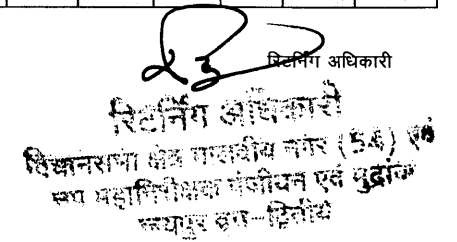 रिटर्निंग अधिकारी
रिटर्निंग अधिकारी
विधानसभा क्षेत्र मालवीय नगर (54) एवं
उप महानिरीक्षक पंजीयन एवं मुद्रांक
जयपुर वृत्त-द्वितीय